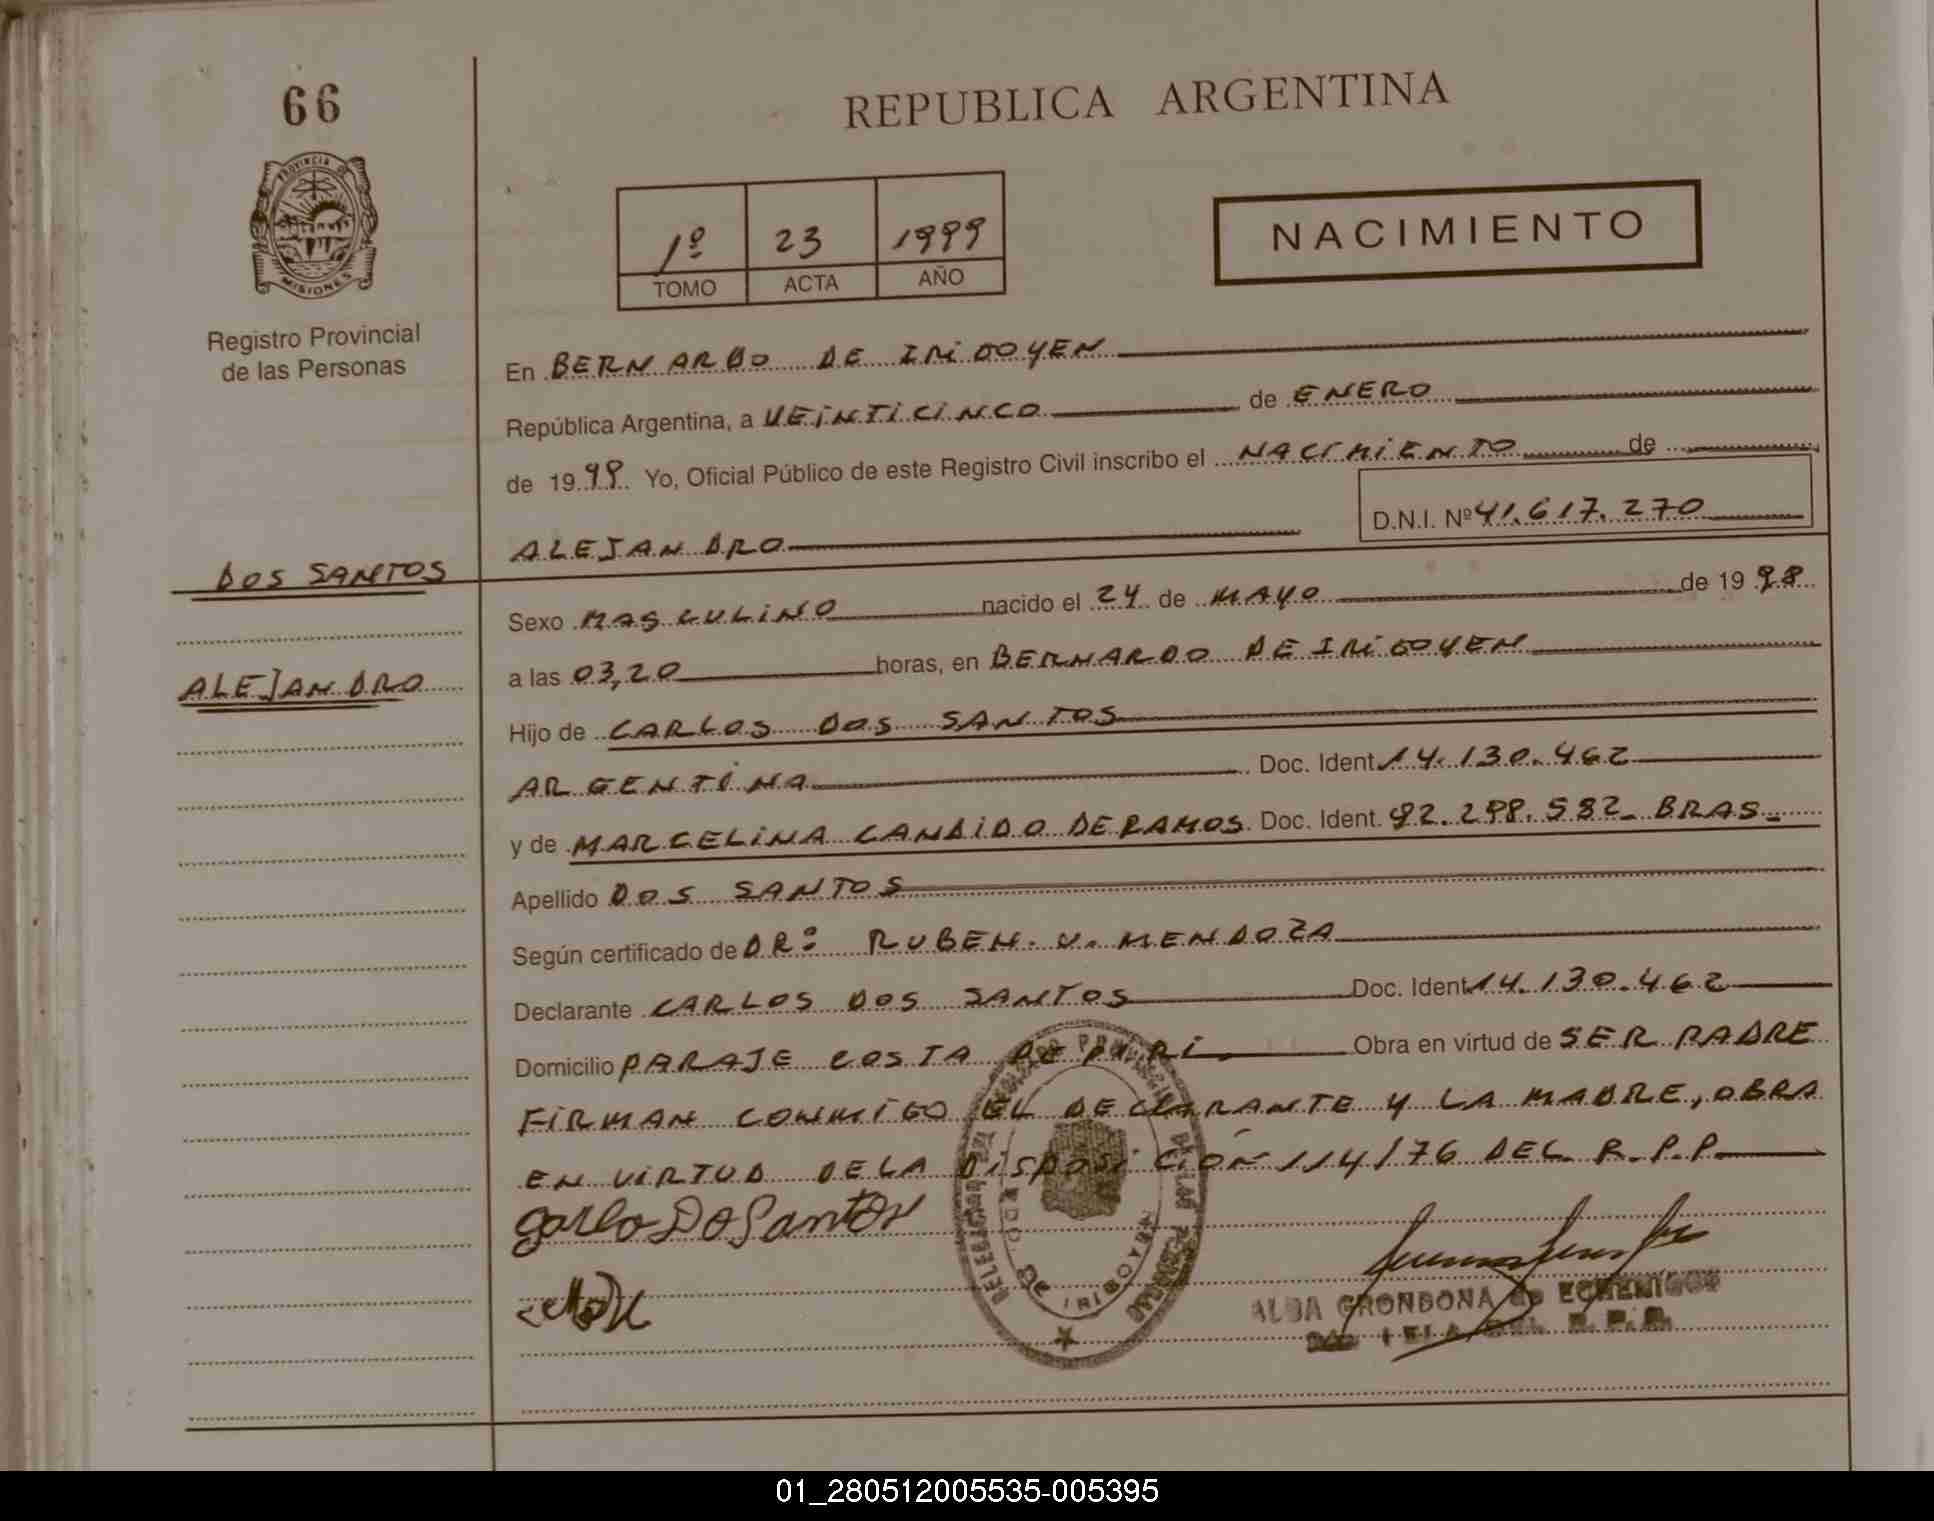 66
PROVINCIA DE
MISIONES
Registro Provincial
de las Personas
REPUBLICA ARGENTINA
1º 23 1999
TOMO ACTA AÑO
NACIMIENTO
En BERNARDO DE IRIGOYEN
República Argentina, a VEINTICINCO de ENERO
de 1999 Yo, Oficial Público de este Registro Civil inscribo el NACIMIENTO de
D.N.I. Nº 41.617.270
ALEJANDRO
DOS SANTOS
ALEJANDRO
Sexo MASCULINO nacido el 24 de MAYO de 1998
a las 03,20 horas, en BERNARDO DE IRIGOYEN
Hijo de CARLOS DOS SANTOS
ARGENTINA Doc. Ident. 14.130.462
y de MARCELINA CANDIDO DE RAMOS Doc. Ident. 92.298.582_ BRAS_
Apellido DOS SANTOS
Según certificado de DRº RUBEN. V. MENDOZA
Declarante CARLOS DOS SANTOS Doc. Ident. 14.130.462
Domicilio PARAJE COSTA DE Obra en virtud de SER PADRE
FIRMAN CONMIGO EL DECLARANTE Y LA MADRE, OBRA
EN VIRTUD DE LA DISPOSICIÓN 114/76 DEL R.P.P.
ALBA GRONDONA de
R.P.P.
01_280512005535-005395